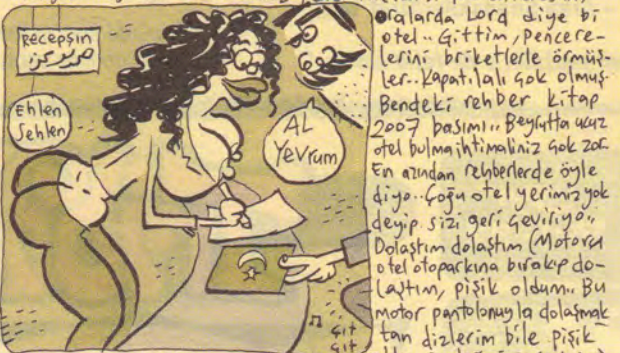 Recepşin
Ehlen
Sehlen
AL
Yevrum
çıt
çıt
oralarda Lord diye bi
otel.. Gittim, pencere-
lerini briketlerle örmüş-
ler.. Kapatılalı çok olmuş
Bendeki rehber kitap
2007 basımı.. Beyrutta ucuz
otel bulma ihtimaliniz çok zor.
En azından rehberlerde öyle
diyo.. Çoğu otel yerimiz yok
deyip sizi geri çeviriyo..
Dolaştım dolaştım (Motoru
otel otoparkına bırakıp do-
laştım, pişik oldum.. Bu
motor pantolonuyla dolaşmak
tan dizlerim bile pişik